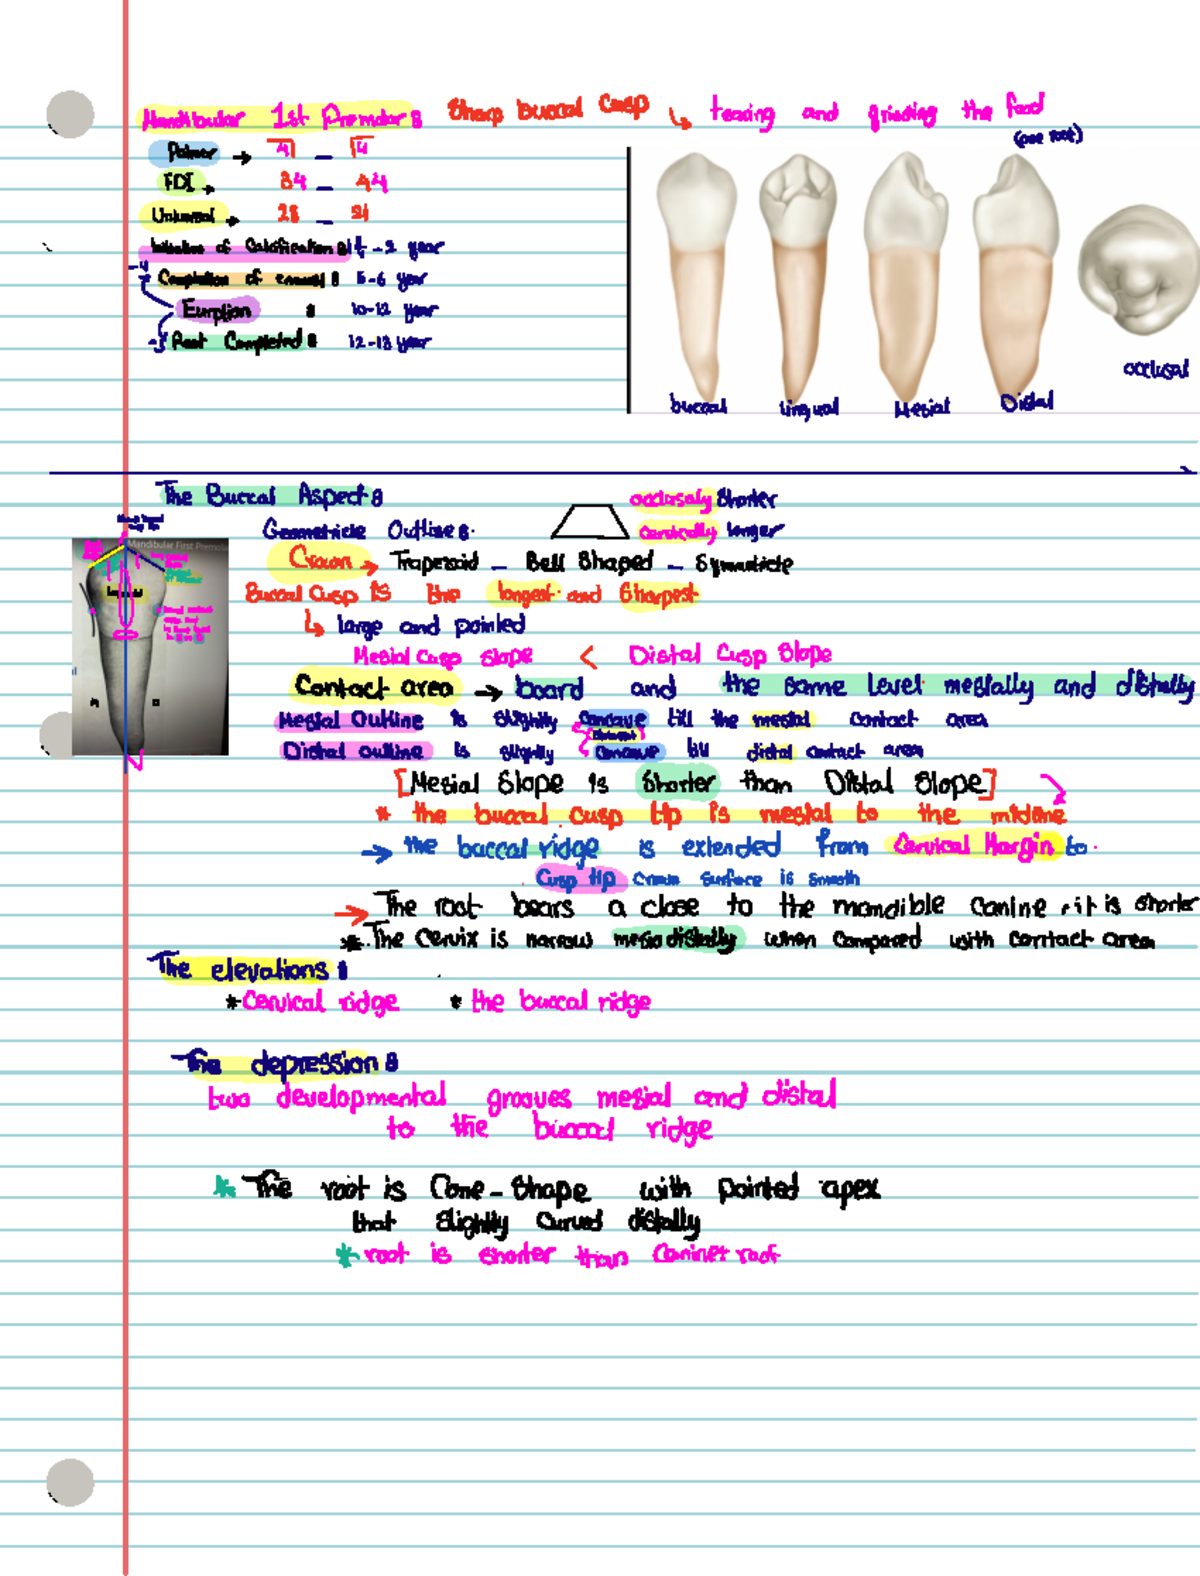 Mandibular 1st Premolar: Sharp buccal Cusp ↳ tearing and grinding the food
(one root)
Palmer → 4 - 4
FDI → 34 - 44
Universal → 28 - 21
Initiation of Calcification: 1½ - 2 year
Completion of enamel: 5-6 year
Eruption : 10-12 year
Root Completed: 12-13 year
buccal lingual Mesial Distal occlusal
The Buccal Aspect:
occlusaly shorter
Geometricle Outline:
Cervically longer
Mandibular First Premola
Crown → Trapezoid - Bell Shaped - Symmetricle
Buccal Cusp is the longest and Sharpest
↳ large and pointed
Mesial Cusp slope < Distal Cusp Slope
Contact area → board and the same level mesially and distally
Mesial Outline is slightly Concave till the mesial contact area
Distal outline is slightly Concave by distal contact area
[Mesial Slope is Shorter than Distal Slope]
* the buccal cusp tip is mesial to the midline
→ the buccal ridge is extended from Cervical Margin to
Cusp tip Crown Surface is smooth
→ The root bears a close to the mandible Canine, it is shorter
* The Cervix is narrow mesiodistally when compared with contact area
The elevations:
* Cervical ridge * the buccal ridge
The depression:
two developmental grooves mesial and distal
to the buccal ridge
* The root is Cone-Shape with pointed apex
that slightly curved distally
* root is shorter than Caninet root